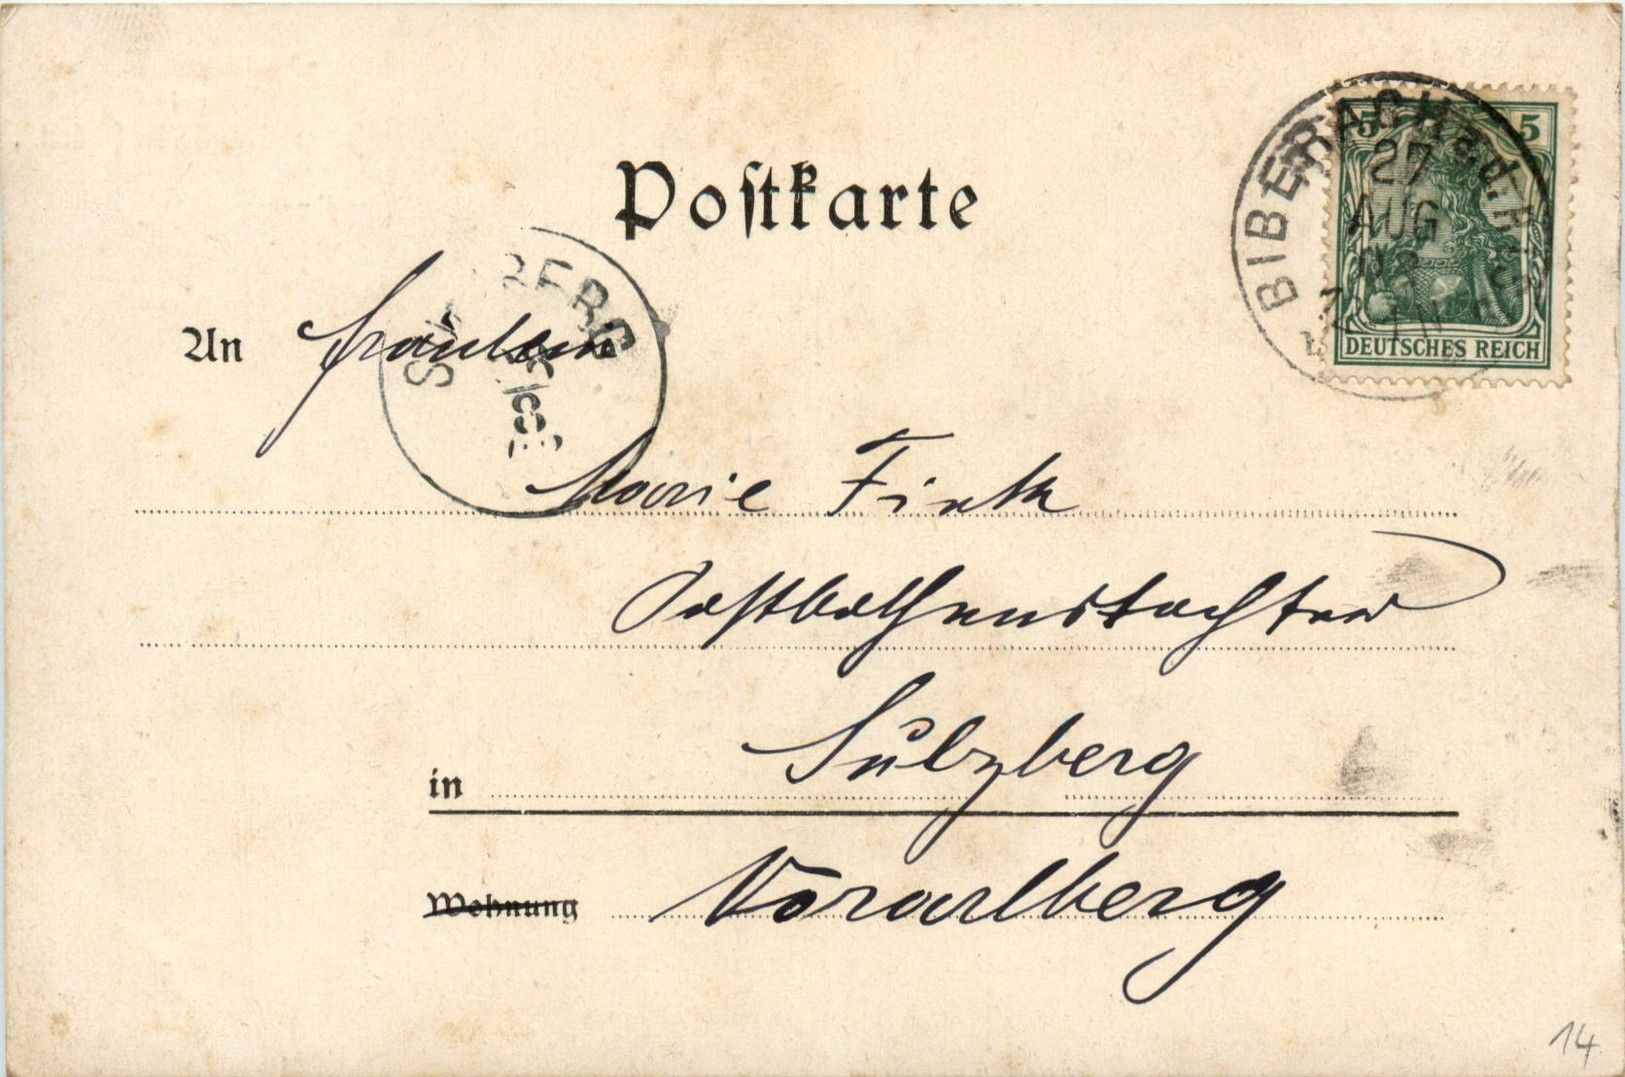 Postkarte
BIBERACH a.d. RISS
27
AUG
5 5
DEUTSCHES REICH
SULZBERG
An Fräulein
Marie Fink
Postbothenstochter
in Sulzberg
Wohnung Vorarlberg
14